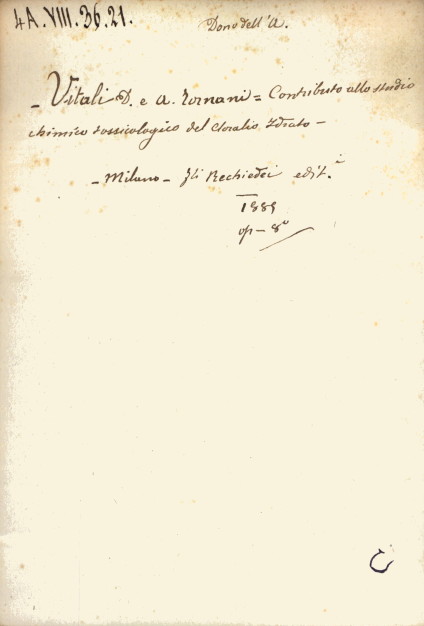 4A.VIII.36.21.
Dono dell'A.
- Vitali D. e A. Tornani = Contributo allo studio
chimico tossicologico del Cloralio Idrato -
- Milano - Gli Rechiedei edit.i
1889
op - 8°